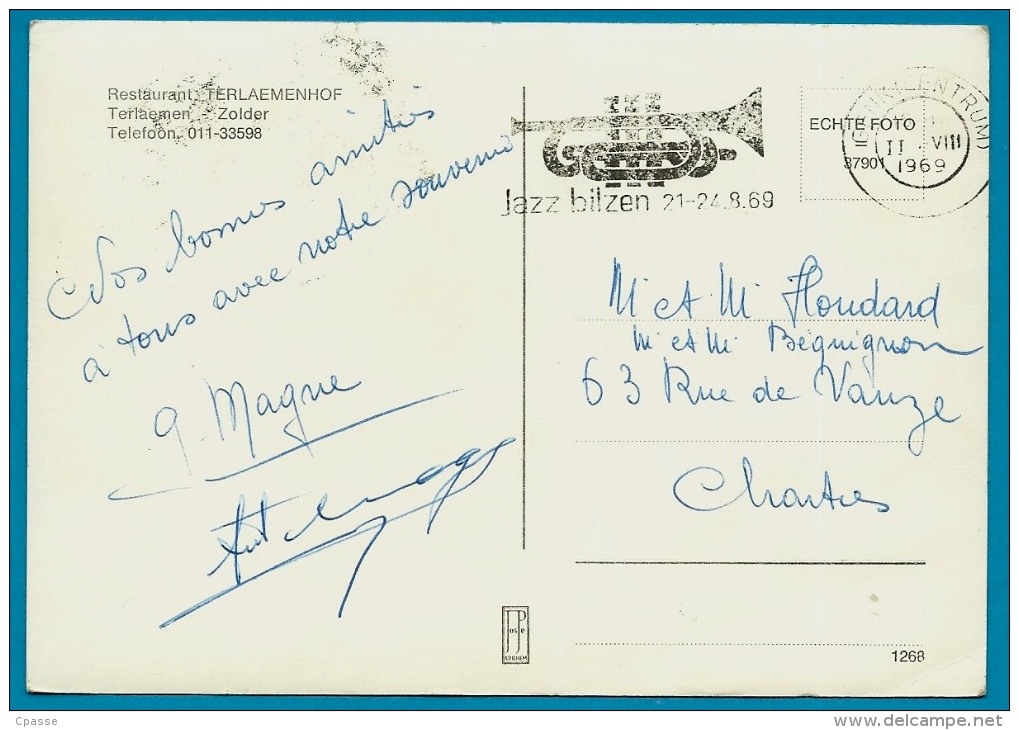 Restaurant TERLAEMENHOF
Terlaemen - Zolder
Telefoon. 011-33598
Nos bonnes amitiés
à tous avec notre souvenir
G. Magne
Jazz bilzen 21-24.8.69
ECHTE FOTO
37901
(GENK)(CENTRUM)
II VIII
1969
M et Mᵉ Houdard
M et Mᵉ Béguignon
63 Rue de Vauze
Chartres
JosPe
ARNHEM
1268
Cpasse
http://www.delcampe.net